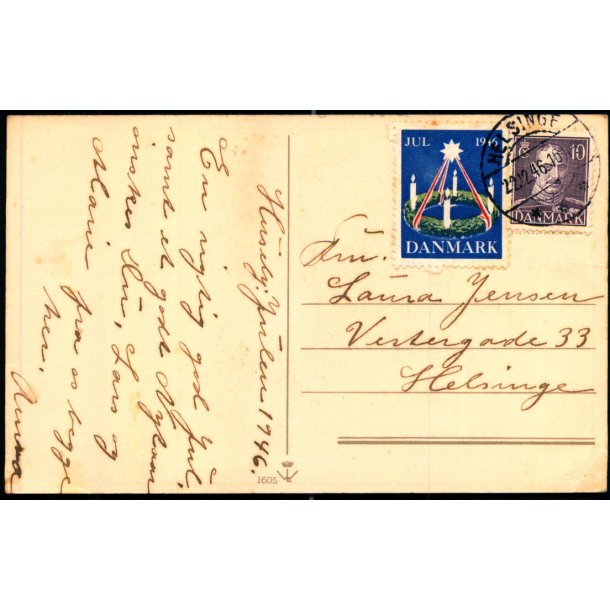 Huseby. Julen 1946.
En rigtig god Jul,
samt et godt Nytaar
ønskes Du, Lars og
Marie fra os begge
her. Anna
1605
JUL 1946
DANMARK
HELSINGE
22.12.46.
10
DANMARK
Frn.
Laura Jensen
Vestergade 33
Helsinge